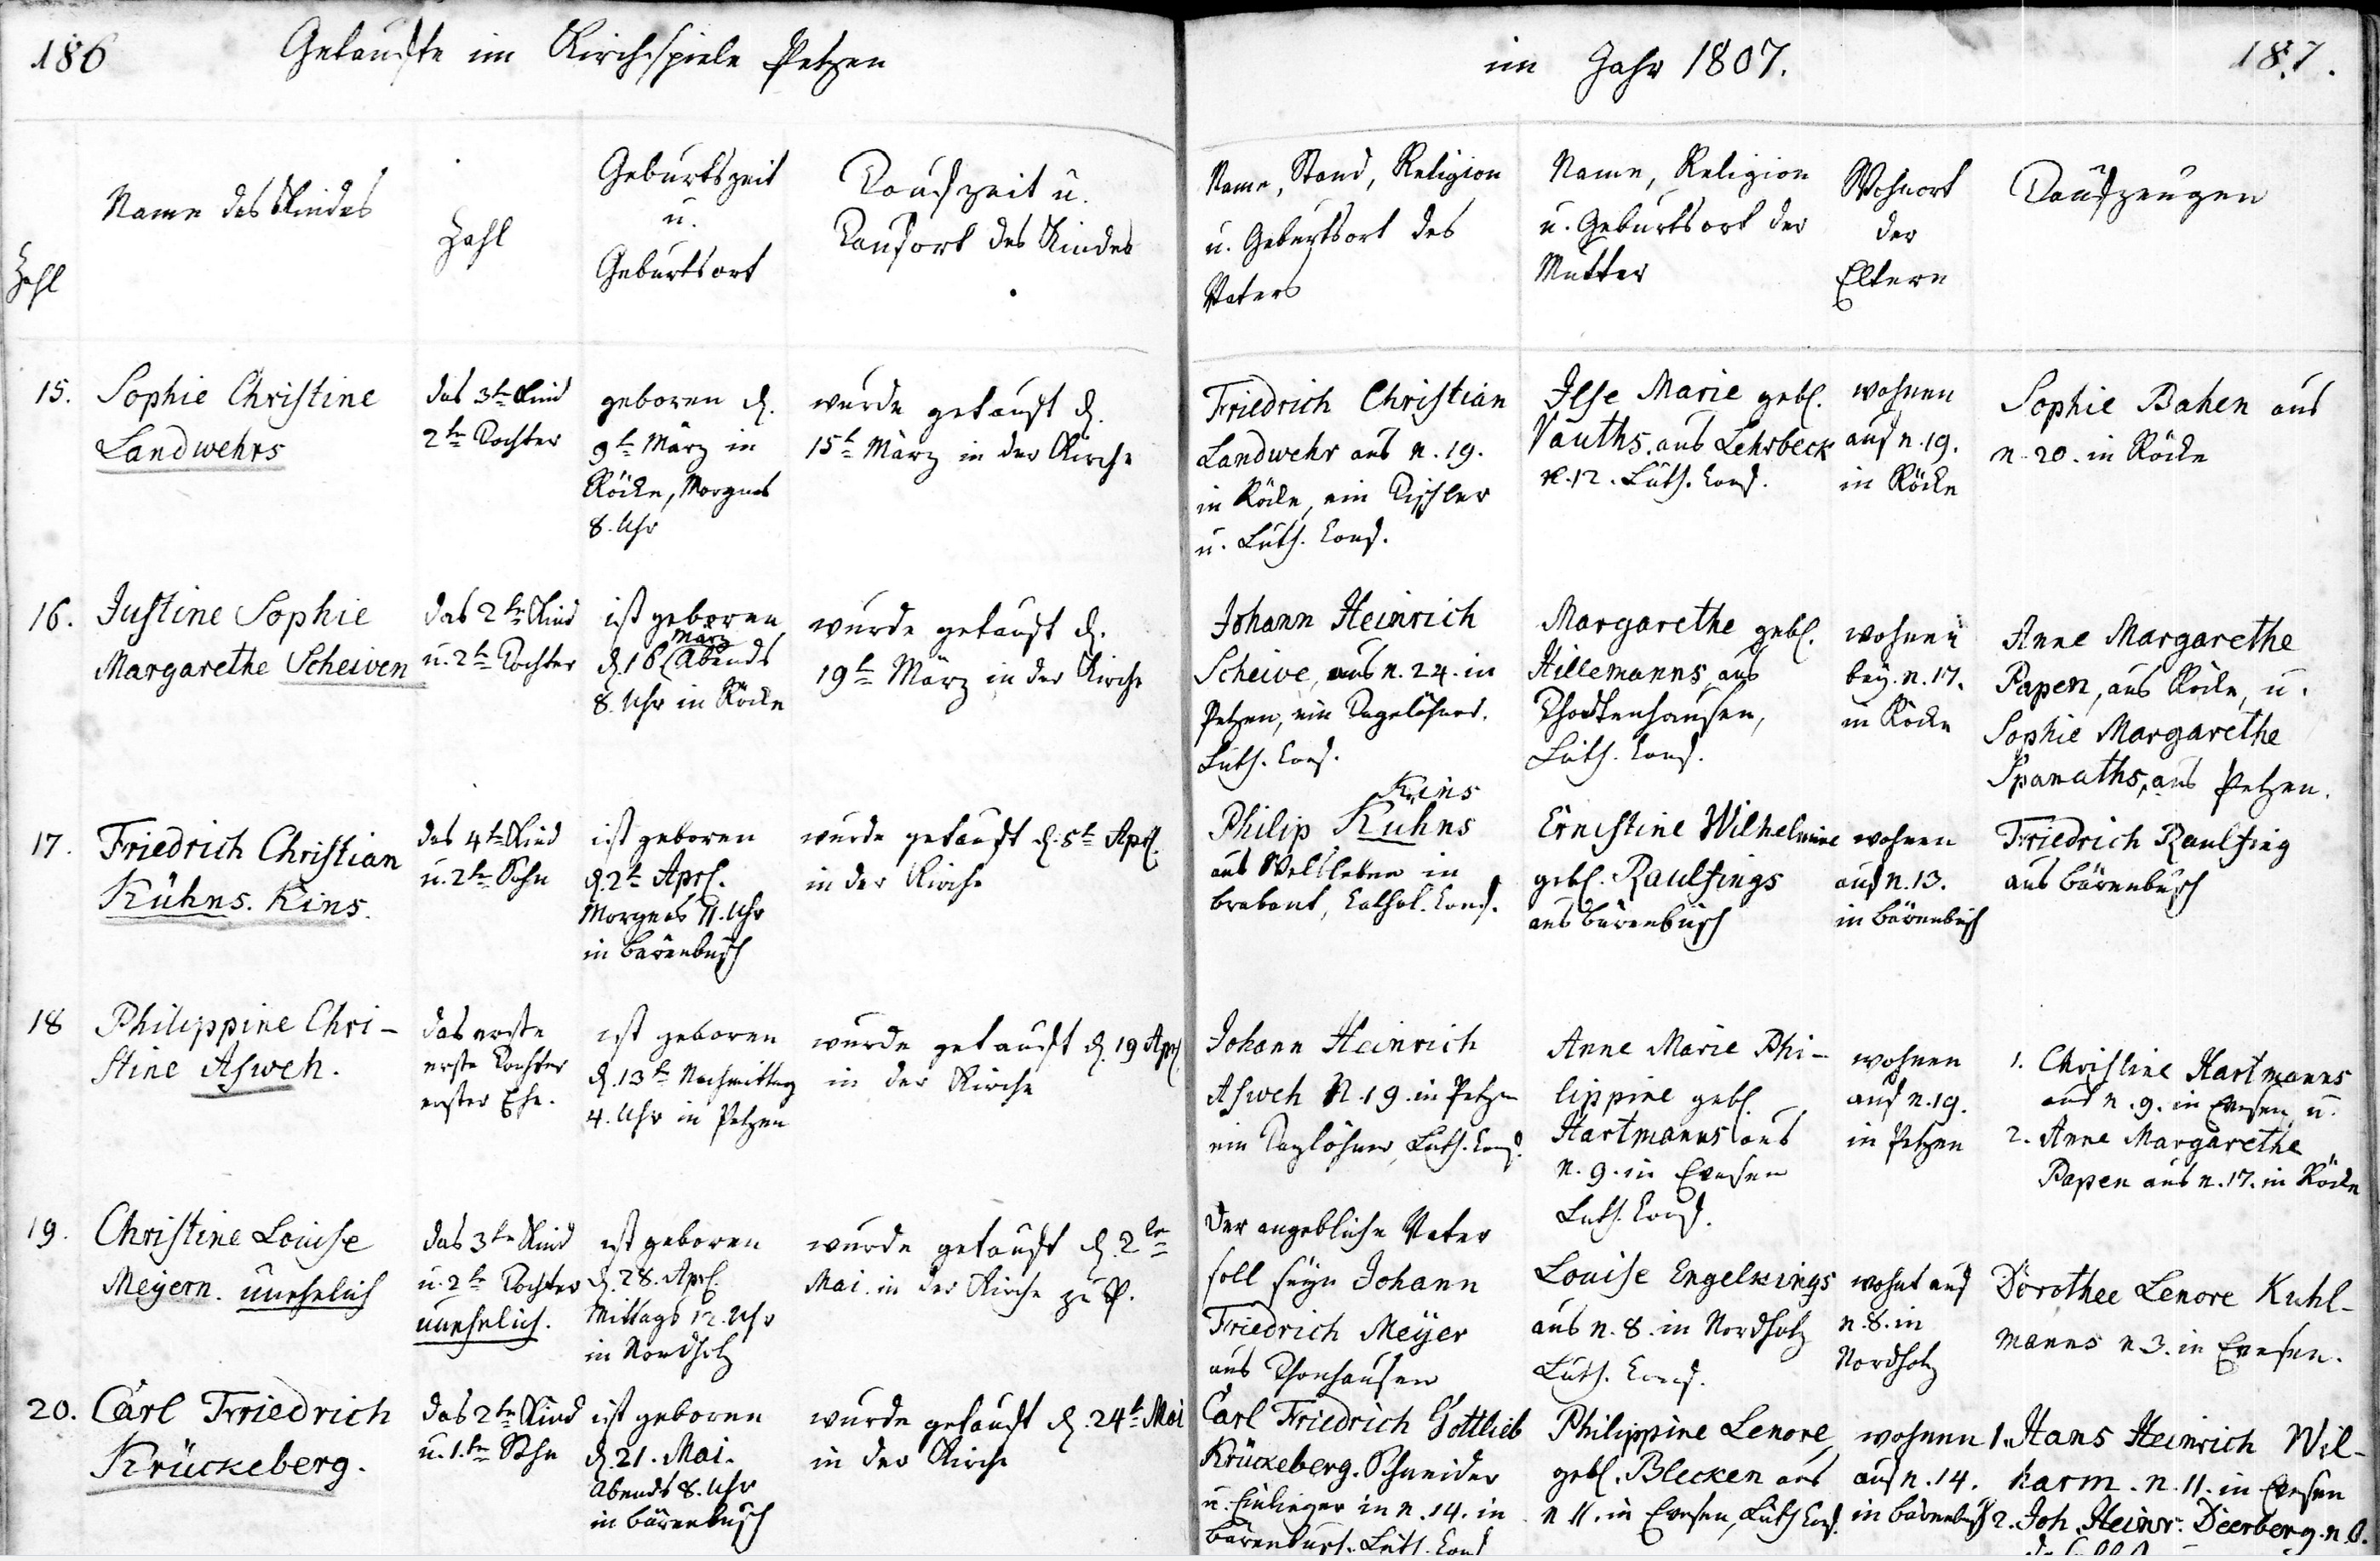 186
Getaufte im Kirchspiele Petzen
im Jahr 1807.
187.
Zahl
Name des Kindes
Zahl
Geburtszeit
u.
Geburtsort
Taufzeit u.
Taufort des Kindes
Name, Stand, Religion
u. Geburtsort des
Vaters
Name, Religion
u. Geburtsort der
Mutter
Wohnort
der
Eltern
Taufzeugen
15.
Sophie Christine
Landwehrs
das 3te Kind
2te Tochter
geboren d.
9te März in
Röcke, Morgens
8. Uhr
wurde getauft d.
15te März in der Kirche
Friedrich Christian
Landwehr aus n. 19.
in Röcke, ein Tischler
u. Luth. Conf.
Ilse Marie geb.
Vauths. aus Lehrbeck
n. 12. Luth. Conf.
wohnen
auf n. 19.
in Röcke
Sophie Bahen aus
n. 20. in Röcke
16.
Justine Sophie
Margarethe Scheiven
das 2te Kind
u. 2te Tochter
ist geboren
März
d. 16 Abends
8. Uhr in Röcke
wurde getauft d.
19te März in der Kirche
Johann Heinrich
Scheive, aus n. 24. in
Petzen, ein Tagelöhner.
Luth. Conf.
Margarethe geb.
Hillemanns aus
Luth. Conf.
wohnen
bey. n. 17.
in Röcke
Anne Margarethe
Papen, aus Röcke, u.
Sophie Margarethe
Spanuths, aus Petzen.
17.
Friedrich Christian
Kühns. Kins.
das 4te Kind
u. 2te Sohn
ist geboren
d. 2te Aprl.
Morgens 11. Uhr
in Bärenbusch
wurde getauft d. 5te Aprl.
in der Kirche
Kins
Philip Kuhns
aus in
Brabant, Cathol. Conf.
Ernestine Wilhelmine
geb. Raulfings
aus Bärenbusch
wohnen
auf n. 13.
in Bärenbusch
Friedrich Raulfing
aus Bärenbusch
18
Philippine Chri-
stine Asweh.
das erste
erste Tochter
erster Ehe.
ist geboren
d. 13te Nachmittag
4. Uhr in Petzen
wurde getauft d. 19 Aprl.
in der Kirche
Johann Heinrich
Asweh N. 19. in Petzen
ein Taglöhner, Luth. Conf.
Anne Marie Phi-
lippine geb.
Hartmanns aus
n. 9. in Evesen
Luth. Conf.
wohnen
auf n. 19.
in Petzen
1. Christine Hartmanns
aus n. 9. in Evesen, u.
2. Anne Margarethe
Papen aus n. 17. in Röcke
19.
Christine Louise
Meyern. unehelich
das 3te Kind
u. 2te Tochter
unehelich.
ist geboren
d. 28. Aprl.
Mittags 12. Uhr
in Nordholz
wurde getauft d. 2te
Mai in der Kirche zu P.
Der angebliche Vater
soll seyn Johann
Friedrich Meyer
aus
Louise Engelkings
aus n. 8. in Nordholz
Luth. Conf.
wohnt auf
n. 8. in
Nordholz
Dorothee Lenore Kuhl-
manns n. 3. in Evesen.
20.
Carl Friedrich
Krückeberg.
das 2te Kind
u. 1.te Sohn
ist geboren
d. 21. Mai.
Abends 8. Uhr
in Bärenbusch
wurde getauft d. 24te Mai
in der Kirche
Carl Friedrich Gottlieb
Krückeberg. Schneider
u. Einlieger in n. 14. in
Bärenbusch. Luth. Conf
Philippine Lenore
geb. Blecken aus
n 11. in Evesen, Luth Conf.
wohnen
auf n. 14.
in Bärenbusch
1. Hans Heinrich Wil-
harm. n. 11. in Evesen
2. Joh. Heinr. Deerberg. n. 8.